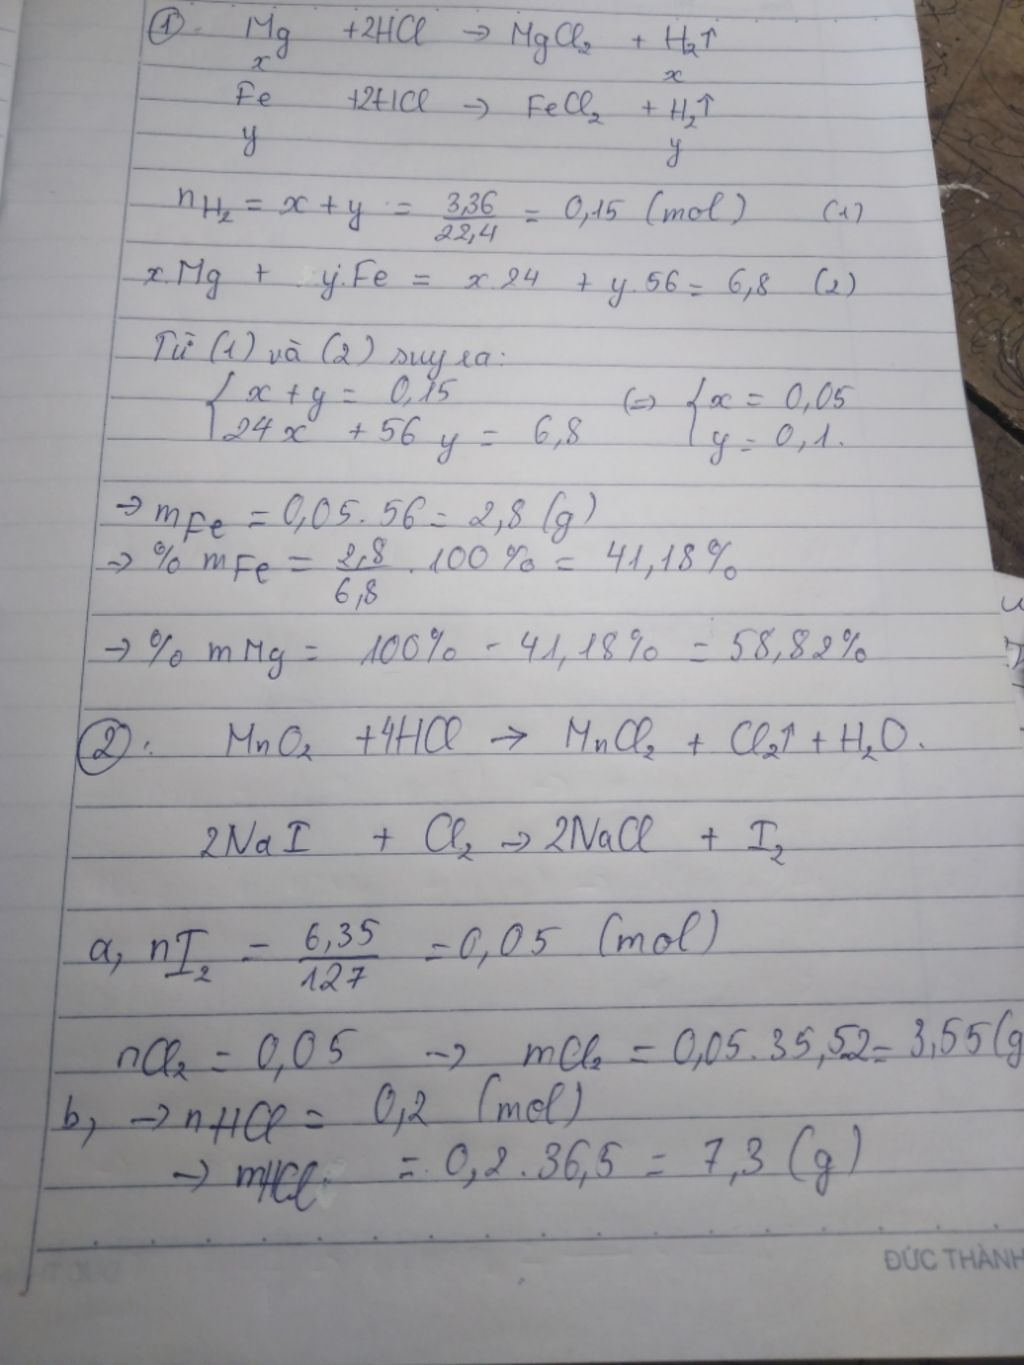 ① Mg +2HCl → MgCl₂ + H₂↑
x x
Fe +2HCl → FeCl₂ + H₂↑
y y
nH₂ = x + y = 3,36/22,4 = 0,15 (mol) (1)
x.Mg + y.Fe = x.24 + y.56 = 6,8 (2)
Từ (1) và (2) suy ra:
{ x + y = 0,15 (=) { x = 0,05
24x + 56y = 6,8 y = 0,1.
→ mFe = 0,05.56 = 2,8 (g)
→ % mFe = 2,8/6,8 . 100% = 41,18%
→ % mMg = 100% - 41,18% = 58,82%
②: MnO₂ +4HCl → MnCl₂ + Cl₂↑ + H₂O.
2NaI + Cl₂ → 2NaCl + I₂
a, nI₂ = 6,35/127 = 0,05 (mol)
nCl₂ = 0,05 → mCl₂ = 0,05.35,52 = 3,55 (g
b, → nHCl = 0,2 (mol)
→ mHCl = 0,2.36,5 = 7,3 (g)
ĐỨC THÀNH